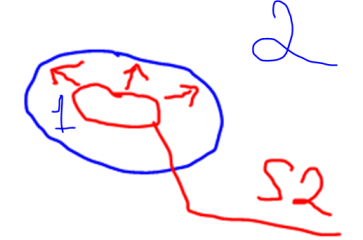 2
1
S2